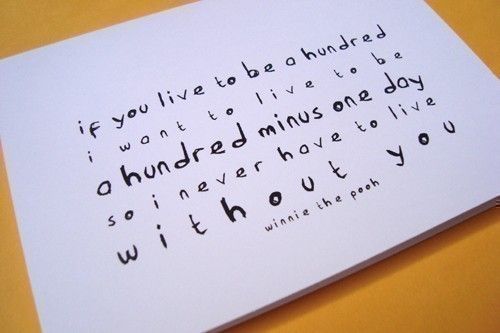 if you live to be a hundred
i want to live to be
a hundred minus one day
so i never have to live
without you
winnie the pooh